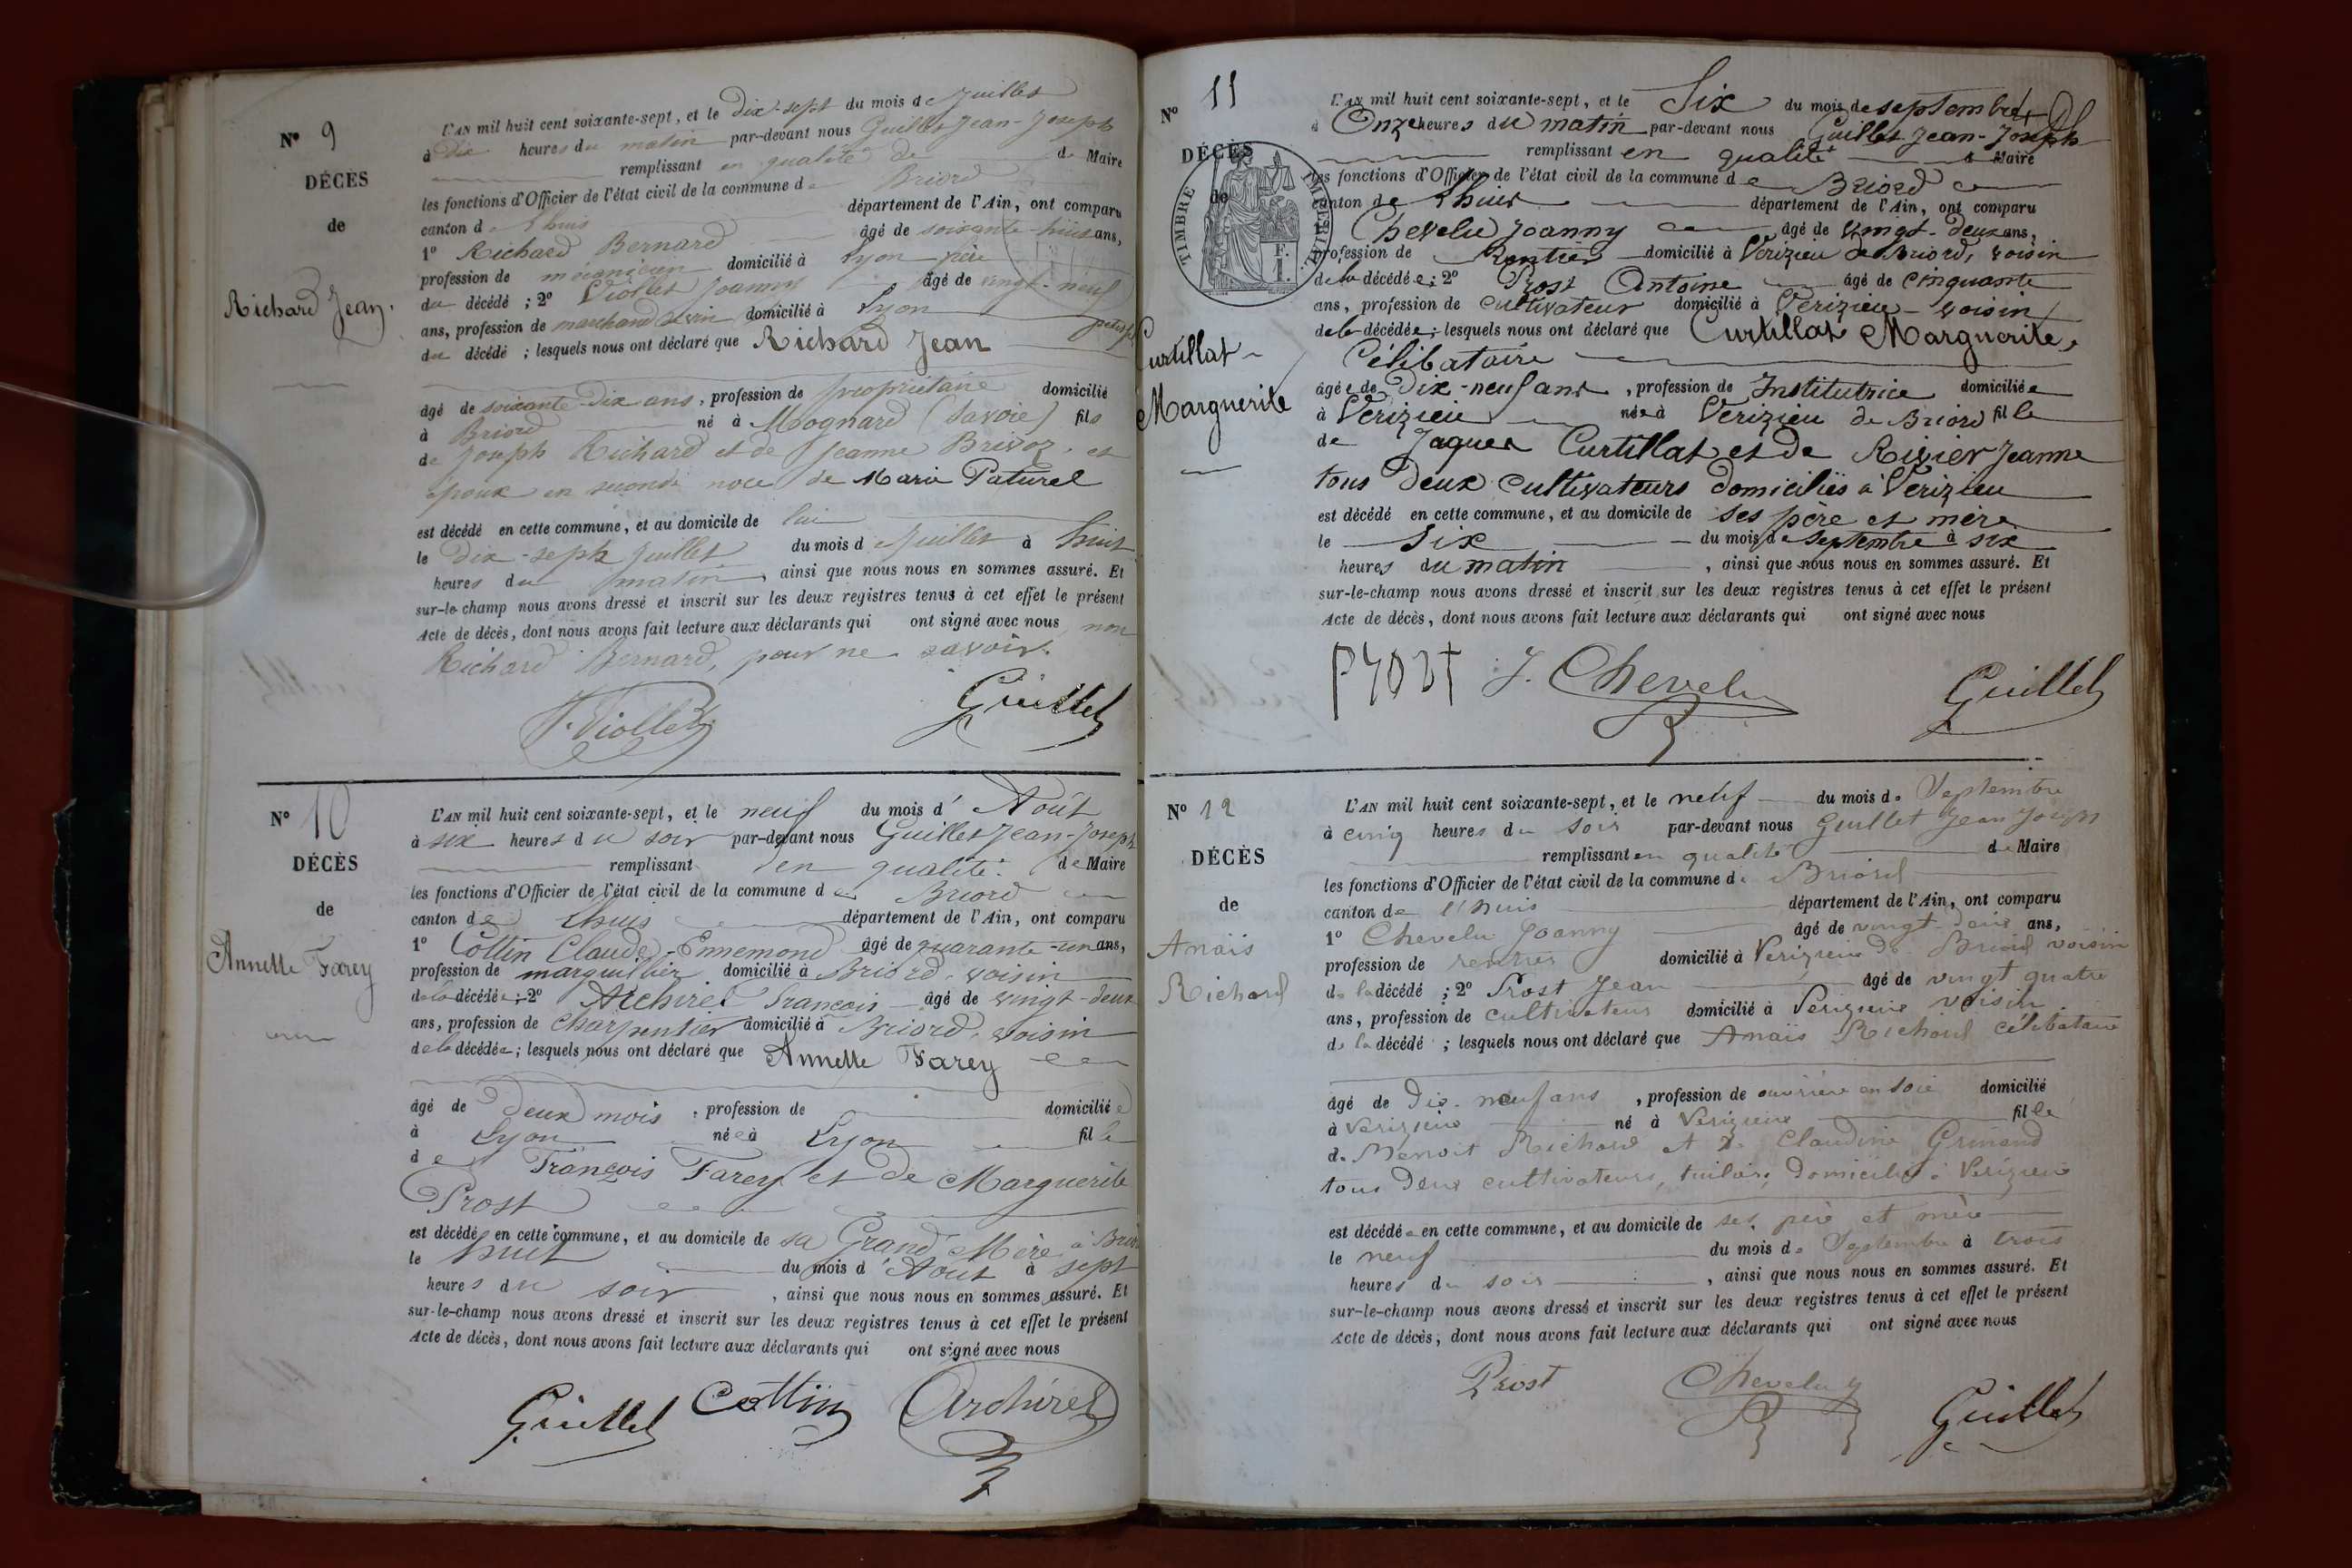 N° 9
DÉCÈS
de
Richard Jean.
L'AN mil huit cent soixante-sept, et le dix-sept du mois de Juillet
à Dix heures du matin par-devant nous Guillet Jean-Joseph
remplissant en qualité de de Maire
les fonctions d'Officier de l'état civil de la commune de Briord
canton d Lhuis département de l'Ain, ont comparu
1° Richard Bernard âgé de soixante-huit ans,
profession de mécanicien domicilié à Lyon père
du décédé ; 2° Viollet Joanny âgé de vingt-neuf
ans, profession de marchand de vin domicilié à Lyon
du décédé ; lesquels nous ont déclaré que Richard Jean
âgé de soixante-Dix ans, profession de propriétaire domicilié
à Briord né à Mognard (Savoie) fils
de Joseph Richard et de Jeanne Brivoz, et
époux en seconde noce de Marie Paturel
est décédé en cette commune, et au domicile de lui
le Dix-sept juillet du mois d Juillet à huit
heures du matin, ainsi que nous nous en sommes assuré. Et
sur-le-champ nous avons dressé et inscrit sur les deux registres tenus à cet effet le présent
Acte de décès, dont nous avons fait lecture aux déclarants qui ont signé avec nous non
Richard Bernard, pour ne savoir.
J. Viollet Guillet
N° 10
DÉCÈS
de
Annette Farey
L'AN mil huit cent soixante-sept, et le neuf du mois d' Août
à six heures du soir par-devant nous Guillet Jean-Joseph
remplissant en qualité de Maire
les fonctions d'Officier de l'état civil de la commune de Briord
canton de Lhuis département de l'Ain, ont comparu
1° Cottin Claude-Ennemond âgé de quarante-un ans,
profession de marguillier domicilié à Briord, voisin
de la décédée ; 2° Archirel François âgé de vingt-deux
ans, profession de Charpentier domicilié à Briord, voisin
de la décédée ; lesquels nous ont déclaré que Annette Farey
âgé de deux mois, profession de domiciliée
à Lyon née à Lyon fille
de François Farey et de Marguerite
Prost
est décédé en cette commune, et au domicile de sa Grand Mère à
le huit du mois d'Août à sept
heures du soir, ainsi que nous nous en sommes assuré. Et
sur-le-champ nous avons dressé et inscrit sur les deux registres tenus à cet effet le présent
Acte de décès, dont nous avons fait lecture aux déclarants qui ont signé avec nous
Guillet Cottin Archirel
N° 11
DÉCÈS
de
TIMBRE IMPÉRIAL
1 F.
Curtillat
Marguerite
L'AN mil huit cent soixante-sept, et le Six du mois de septembre
à Onze heures du matin par-devant nous Guillet Jean-Joseph
remplissant en qualité d Maire
les fonctions d'Officier de l'état civil de la commune de Briord
canton de Lhuis département de l'Ain, ont comparu
Chevelu Joanny âgé de vingt-deux ans,
profession de Rentier domicilié à Vérizieu de Briord, voisin
de la décédée ; 2° Prost Antoine âgé de cinquante
ans, profession de cultivateur domicilié à Vérizieu - voisin
de la décédée ; lesquels nous ont déclaré que Curtillat Marguerite,
Célibataire
âgée de Dix-neuf ans, profession de Institutrice domiciliée
à Vérizieu née à Vérizieu de Briord fille
de Jaques Curtillat et de Rivier Jeanne
tous deux cultivateurs domiciliés à Vérizieu
est décédé en cette commune, et au domicile de ses père et mère
le Six du mois de Septembre à six
heures du matin, ainsi que nous nous en sommes assuré. Et
sur-le-champ nous avons dressé et inscrit sur les deux registres tenus à cet effet le présent
Acte de décès, dont nous avons fait lecture aux déclarants qui ont signé avec nous
Prost J. Chevelu Guillet
N° 12
DÉCÈS
de
Anaïs
Richard
L'AN mil huit cent soixante-sept, et le neuf du mois de Septembre
à cinq heures du soir par-devant nous Guillet Jean Joseph
remplissant en qualité de Maire
les fonctions d'Officier de l'état civil de la commune de Briord
canton de Lhuis département de l'Ain, ont comparu
1° Chevelu Joanny âgé de vingt-deux ans,
profession de rentier domicilié à Vérizieu de Briord voisin
de la décédé ; 2° Prost Jean âgé de vingt quatre
ans, profession de cultivateur domicilié à Vérizieu voisin
de la décédé ; lesquels nous ont déclaré que Anaïs Richard célibataire
âgé de Dix-neuf ans, profession de ouvrière en soie domicilié
à Vérizieu né à Vérizieu fille
de Benoit Richard et de Claudine Grinand
tous deux cultivateurs, domiciliés à Vérizieu
est décédée en cette commune, et au domicile de ses père et mère
le neuf du mois de Septembre à trois
heures du soir, ainsi que nous nous en sommes assuré. Et
sur-le-champ nous avons dressé et inscrit sur les deux registres tenus à cet effet le présent
Acte de décès, dont nous avons fait lecture aux déclarants qui ont signé avec nous
Prost Chevelu Guillet